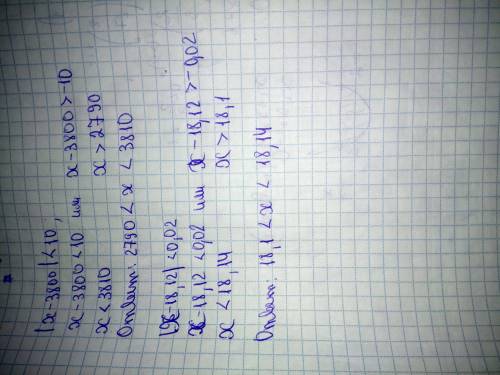 |x-3800|<10,
x-3800<10 или x-3800>-10
x<3810 x>2790
Ответ: 2790<x<3810
|x-18,12|<0,02
x-18,12<0,02 или x-18,12>-0,02
x<18,14 x>18,1
Ответ: 18,1<x<18,14